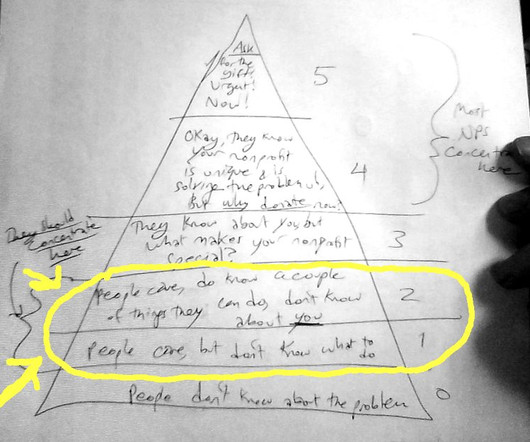 Ask
for the
gift!
Urgent!
Now!
5
Okay, they know
your nonprofit
is unique & is
solving the problem of,
but why donate now?
4
Most
NPS
Concentrate
here
They know about you, but
what makes your nonprofit
special?
3
They should
Concentrate
here
People care, do know a couple
of things they can do, don't know
about you
2
People care, but don't know what to
do
1
People don't know about the problem
0